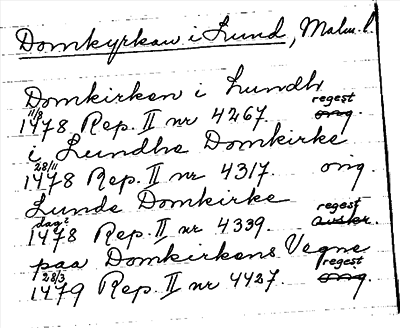 Domkyrkan i Lund, Malm. l.
Domkirken i Lundh
11/8 regest
1478 Rep. II nr 4267. orig.
i Lundhe Domkirke
28/11
1478 Rep. II nr 4317. orig.
Lunde Domkirke
dag? regest
1478 Rep. II nr 4339. avskr.
paa Domkirkens Vegne
28/3 regest
1479 Rep. II nr 4427. orig.